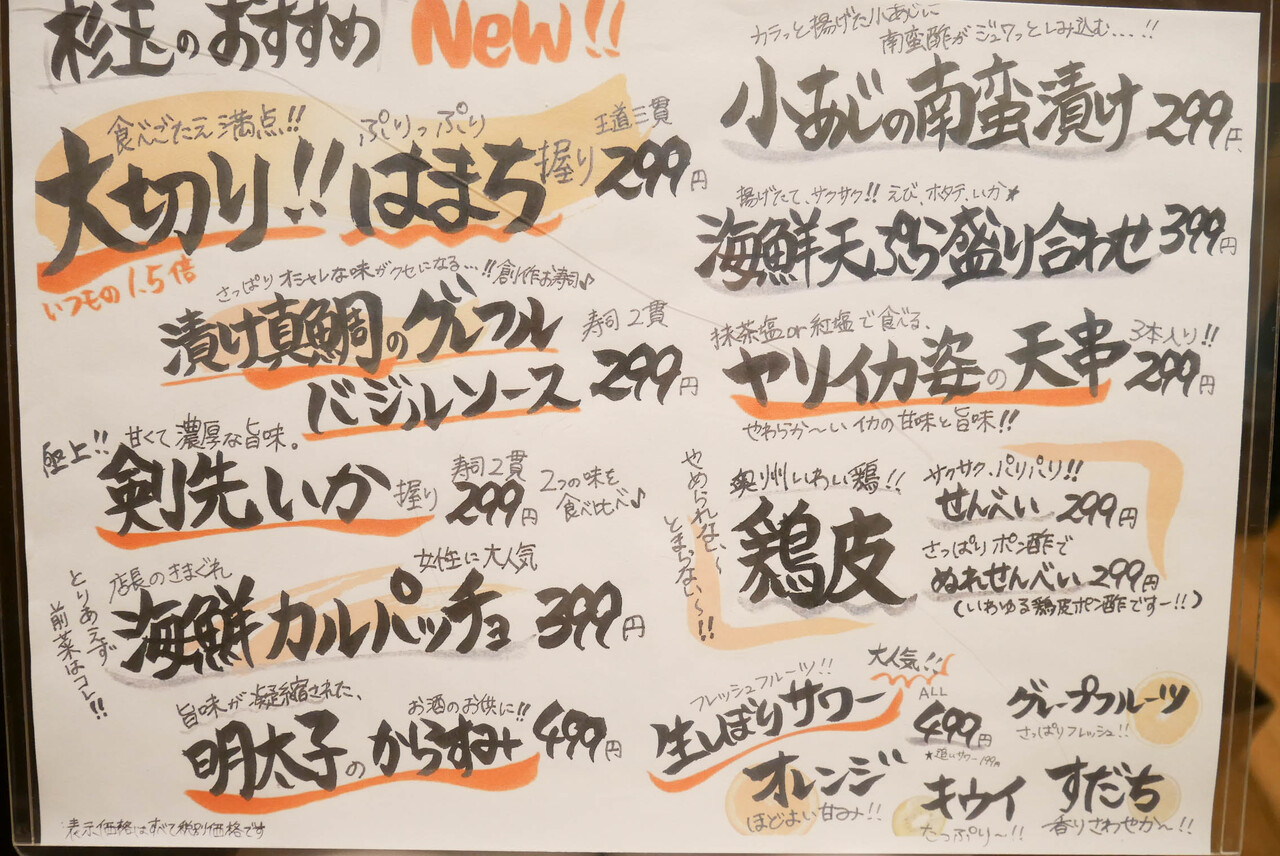 杉玉のおすすめ New!!
食べごたえ満点!! ぷりっぷり 王道三貫
大切り!! はまち 握り 299円
いつもの1.5倍
さっぱりオシャレな味がクセになる…!!創作お寿司♪
漬け真鯛のグレフル 寿司2貫
バジルソース 299円
極上!! 甘くて濃厚な旨味。
剣先いか 握り 寿司2貫 299円 2つの味を食べ比べ♪
店長のきまぐれ 女性に大人気
海鮮カルパッチョ 399円
とりあえず
前菜はコレ!!
旨味が凝縮された、 お酒のお供に!!
明太子のからすみ 499円
表示価格はすべて税別価格です
カラっと揚げた小あじに
南蛮酢がジュワっとしみ込む…!!
小あじの南蛮漬け 299円
揚げたて、サクサク!! えび、ホタテ、いか★
海鮮天ぷら盛り合わせ 399円
抹茶塩or紅塩で食べる、 3本入り!!
ヤリイカ姿の天串 299円
やわらか〜いイカの甘味と旨味!!
やめられない〜
とまらない〜!!
奥州いわい鶏!!
鶏皮
サクサク、パリパリ!!
せんべい 299円
さっぱりポン酢で
ぬれせんべい 299円
(いわゆる鶏皮ポン酢ですー!!)
フレッシュフルーツ!! 大人気!!
生しぼりサワー ALL 499円
★追いサワー199円
グレープフルーツ
さっぱりフレッシュ!!
オレンジ
ほどよい甘み!!
キウイ
たっぷり〜!!
すだち
香りさわやか〜!!